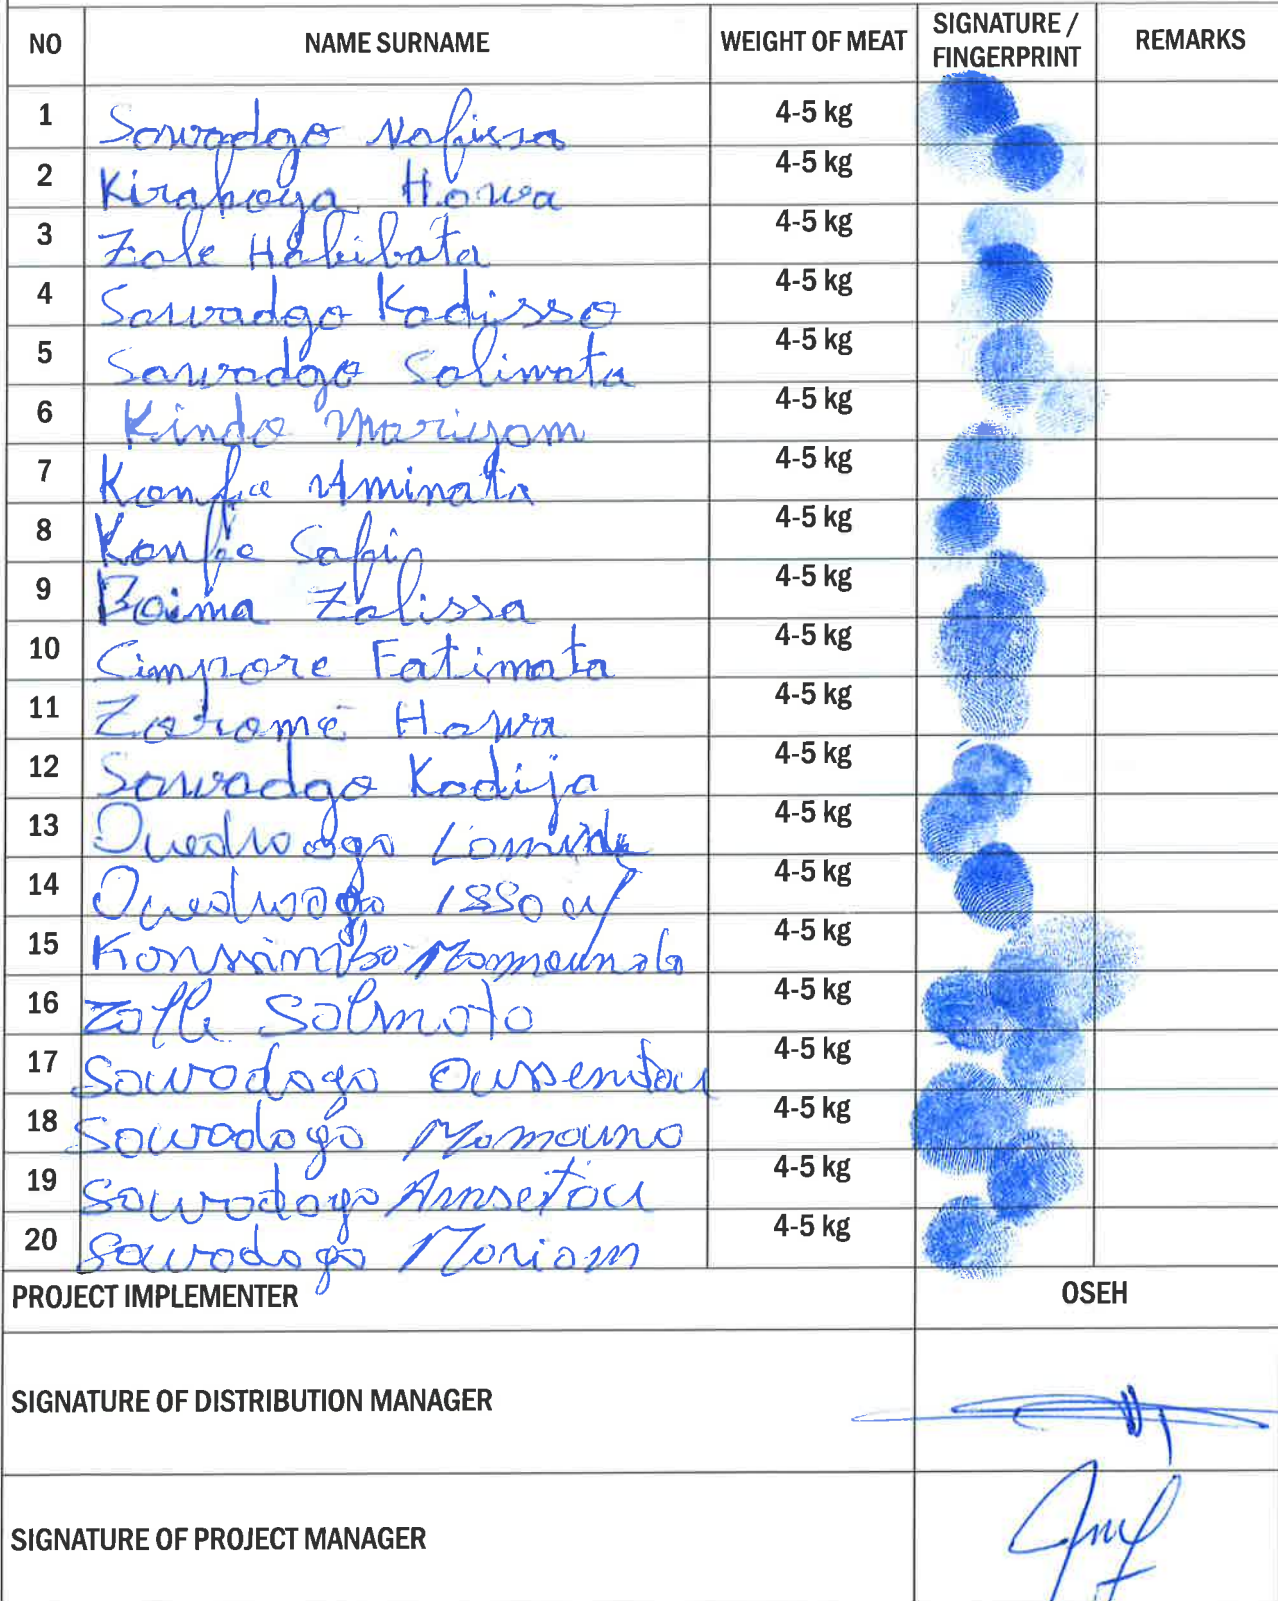 NO NAME SURNAME WEIGHT OF MEAT SIGNATURE / FINGERPRINT REMARKS
1 Sawadogo Nafissa 4-5 kg
2 Kirakoya Howa 4-5 kg
3 Zale Habibata 4-5 kg
4 Sawadgo Kadisso 4-5 kg
5 Sawadgo Salimata 4-5 kg
6 Kindo Mariyam 4-5 kg
7 Konfe Aminata 4-5 kg
8 Konfe Safia 4-5 kg
9 Boima Zalissa 4-5 kg
10 Simpore Fatimata 4-5 kg
11 Zaromé Hawa 4-5 kg
12 Sawadgo Kadija 4-5 kg
13 Ouedraogo 4-5 kg
14 Ouedraogo Issouf 4-5 kg
15 Konsimbo 4-5 kg
16 Salmata 4-5 kg
17 Sawadogo Oussenatou 4-5 kg
18 Sawadogo Mamouna 4-5 kg
19 Sawadogo Amsetou 4-5 kg
20 Sawadogo Mariam 4-5 kg
PROJECT IMPLEMENTER OSEH
SIGNATURE OF DISTRIBUTION MANAGER
SIGNATURE OF PROJECT MANAGER